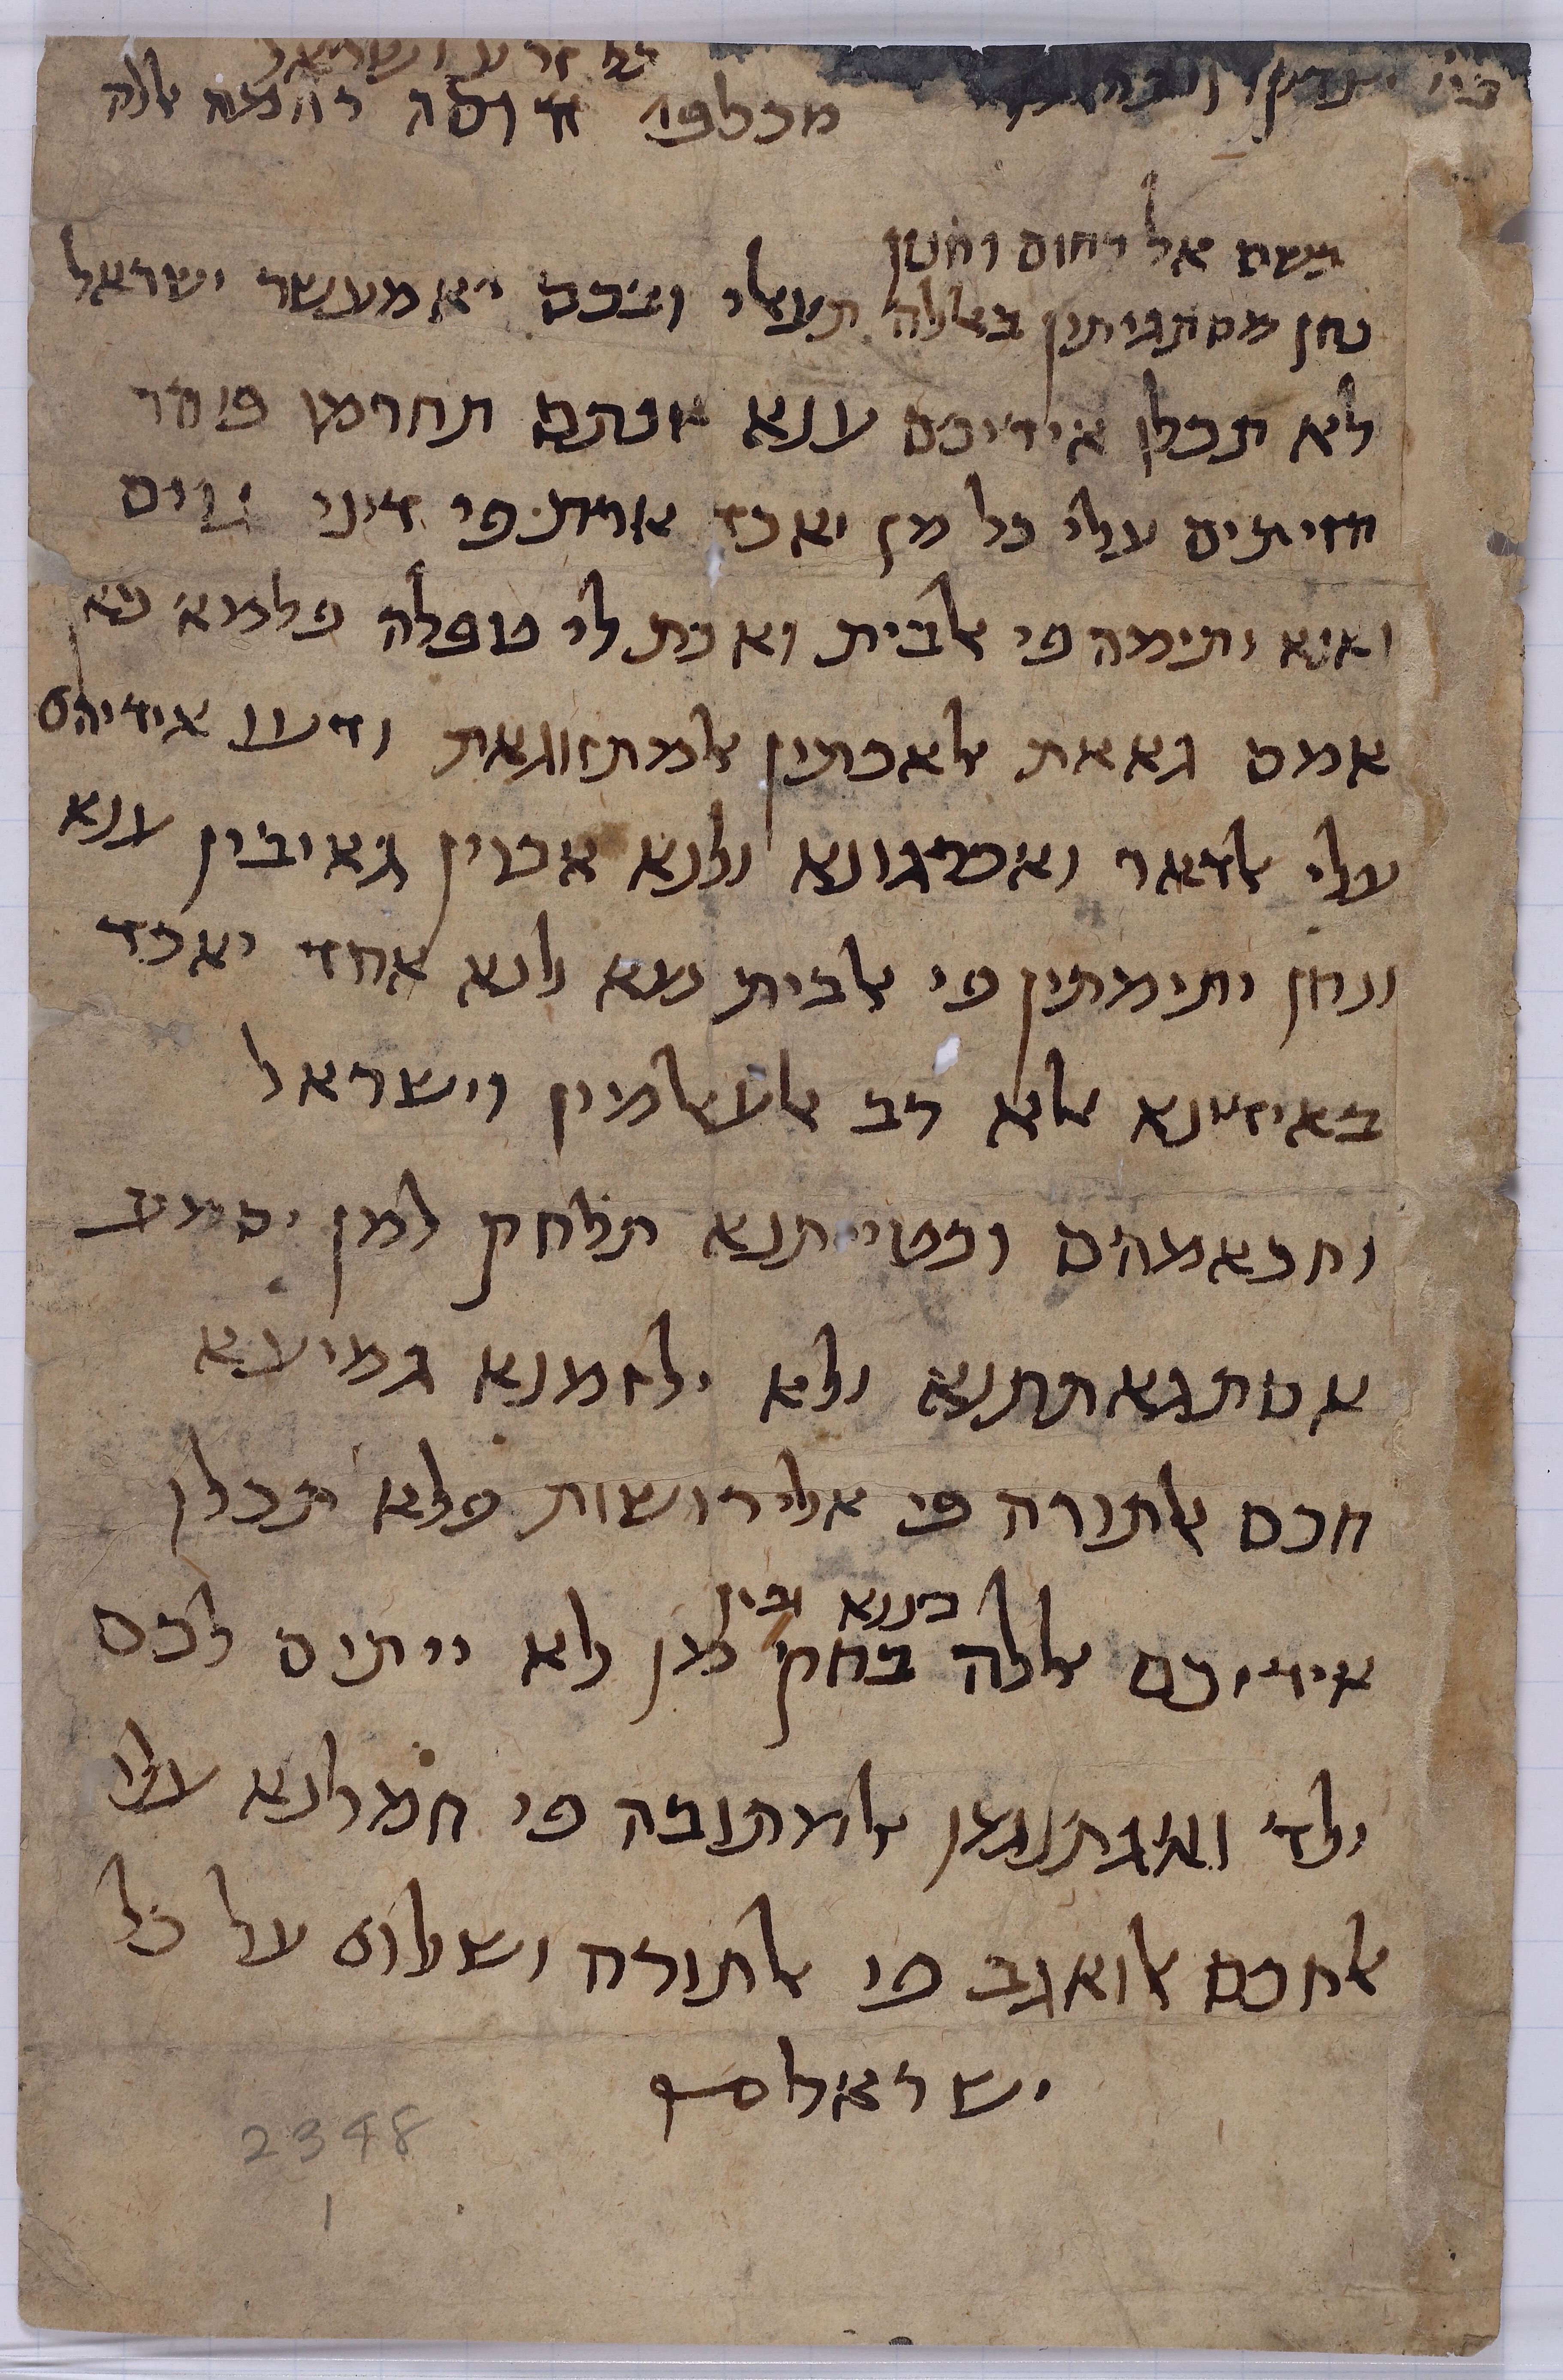 כל זרע ישראל
מכלפי דוסה רחמה אללה
בשם אל רחום וחנון
נחן מסתגיתין באללה תעאלי ובכם יא מעשר ישראל
לא תכלון אידיכם ענא אנתם תחרמון
חזיתים עלי כל מן יאכד ארת פי דיני גוים
ואנא יתימה פי אלבית ואכת לי טפלה פלמא כאן
אמס גאאת אלאכתין אלמתזווגאת ודעו אידיהם
עלי אלדאר ואכרגונא ולנא אכוין גאיבין ענא
ונחן יתימתין פי אלבית מא לנא אחד יאכד
באידינא אלא רב אלעאלמין וישראל
וחכאמהים וכטייתנא תלחק למן יסמע
אסתגאתתנא ולא ילזמנא גמיעא
חכם אלתורה פי אלירושות פלא תכלון
אידיכם אללה בחק ביננא ובין מן לא ייתים לכם
ולד ואגתנמו אלמתובה פי חמלנא עלי
אלחכם אלואגב פי אלתורה ושלום על כל
ישראל
2348
1